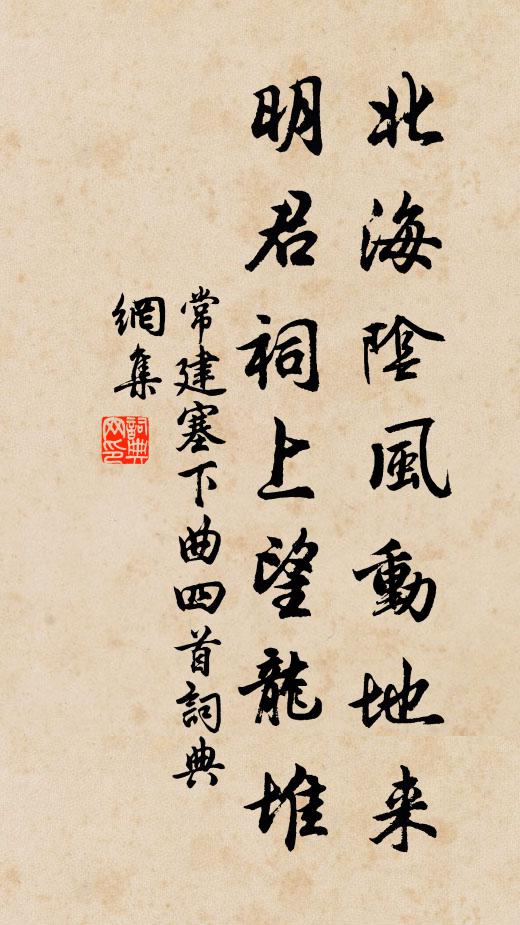 北海陰風動地来
明君祠上望龍堆
常建塞下曲四首詞典
網集
詞典
网印